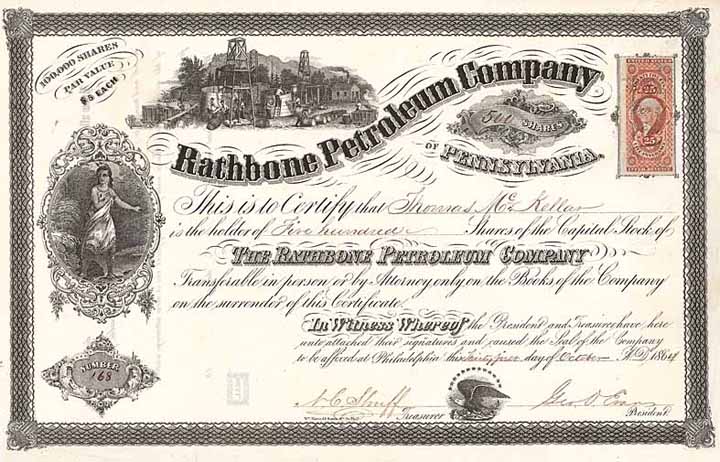 100,000 SHARES
PAR VALUE
$5 EACH
Rathbone Petroleum Company
OF PENNSYLVANIA.
500 SHARES
UNITED STATES
25 25
This is to Certify that Thomas McKellar
is the holder of Five hundred Shares of the Capital Stock of
THE RATHBONE PETROLEUM COMPANY
Transferable in person or by Attorney only on the Books of the Company
on the surrender of this Certificate.
In Witness Whereof the President and Treasurer have here
unto attached their signatures and caused the Seal of the Company
to be affixed at Philadelphia this day of October A.D. 1864
NUMBER
168
Treasurer
Geo. President.